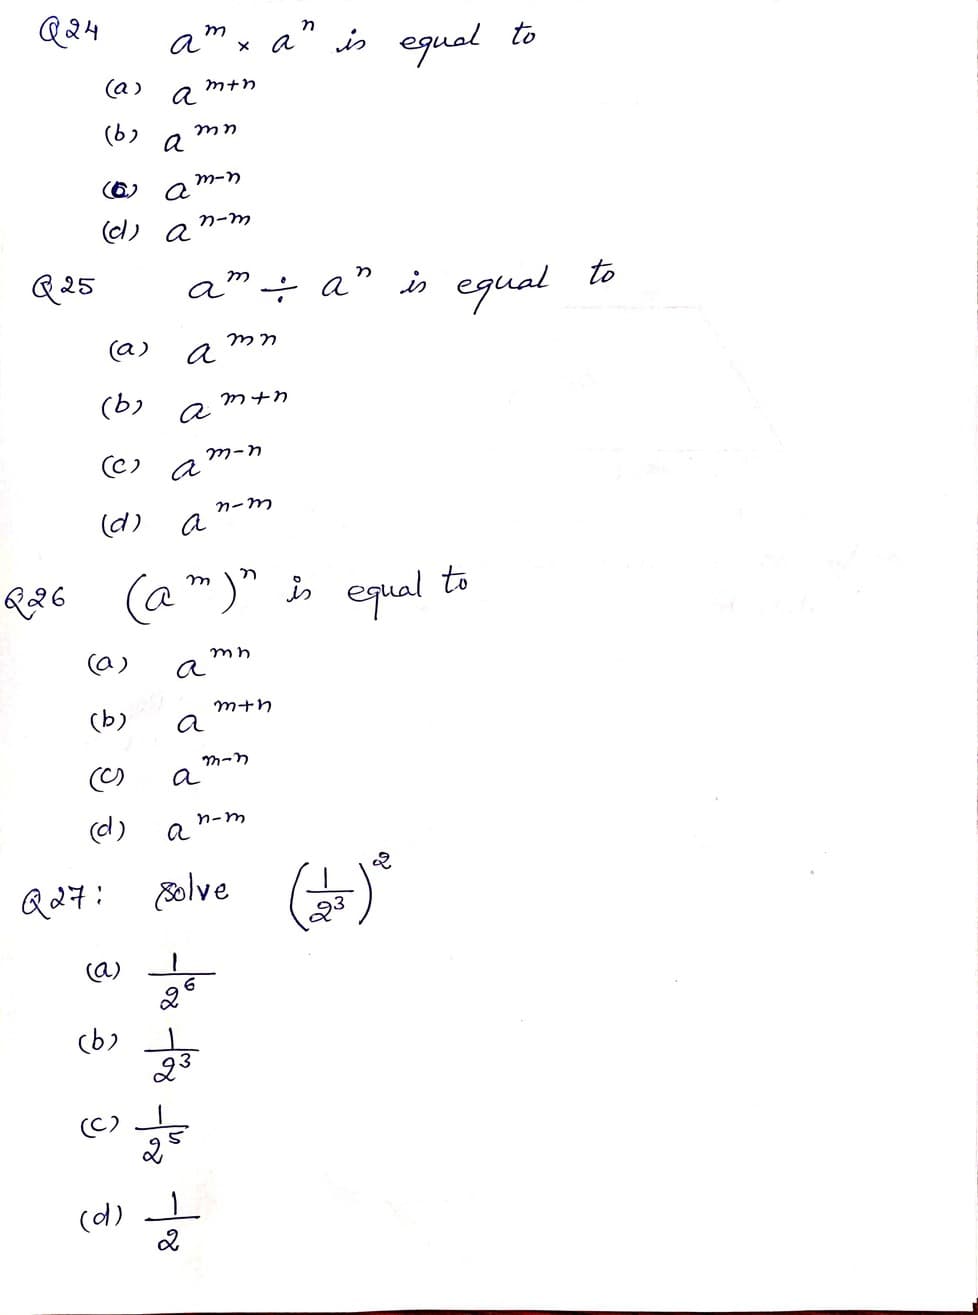 Q24 aᵐ × aⁿ is equal to
(a) aᵐ⁺ⁿ
(b) aᵐⁿ
(c) aᵐ⁻ⁿ
(d) aⁿ⁻ᵐ
Q25 aᵐ ÷ aⁿ is equal to
(a) aᵐⁿ
(b) aᵐ⁺ⁿ
(c) aᵐ⁻ⁿ
(d) aⁿ⁻ᵐ
Q26 (aᵐ)ⁿ is equal to
(a) aᵐⁿ
(b) aᵐ⁺ⁿ
(c) aᵐ⁻ⁿ
(d) aⁿ⁻ᵐ
Q27: Solve (1/2³)²
(a) 1/2⁶
(b) 1/2³
(c) 1/2⁵
(d) 1/2